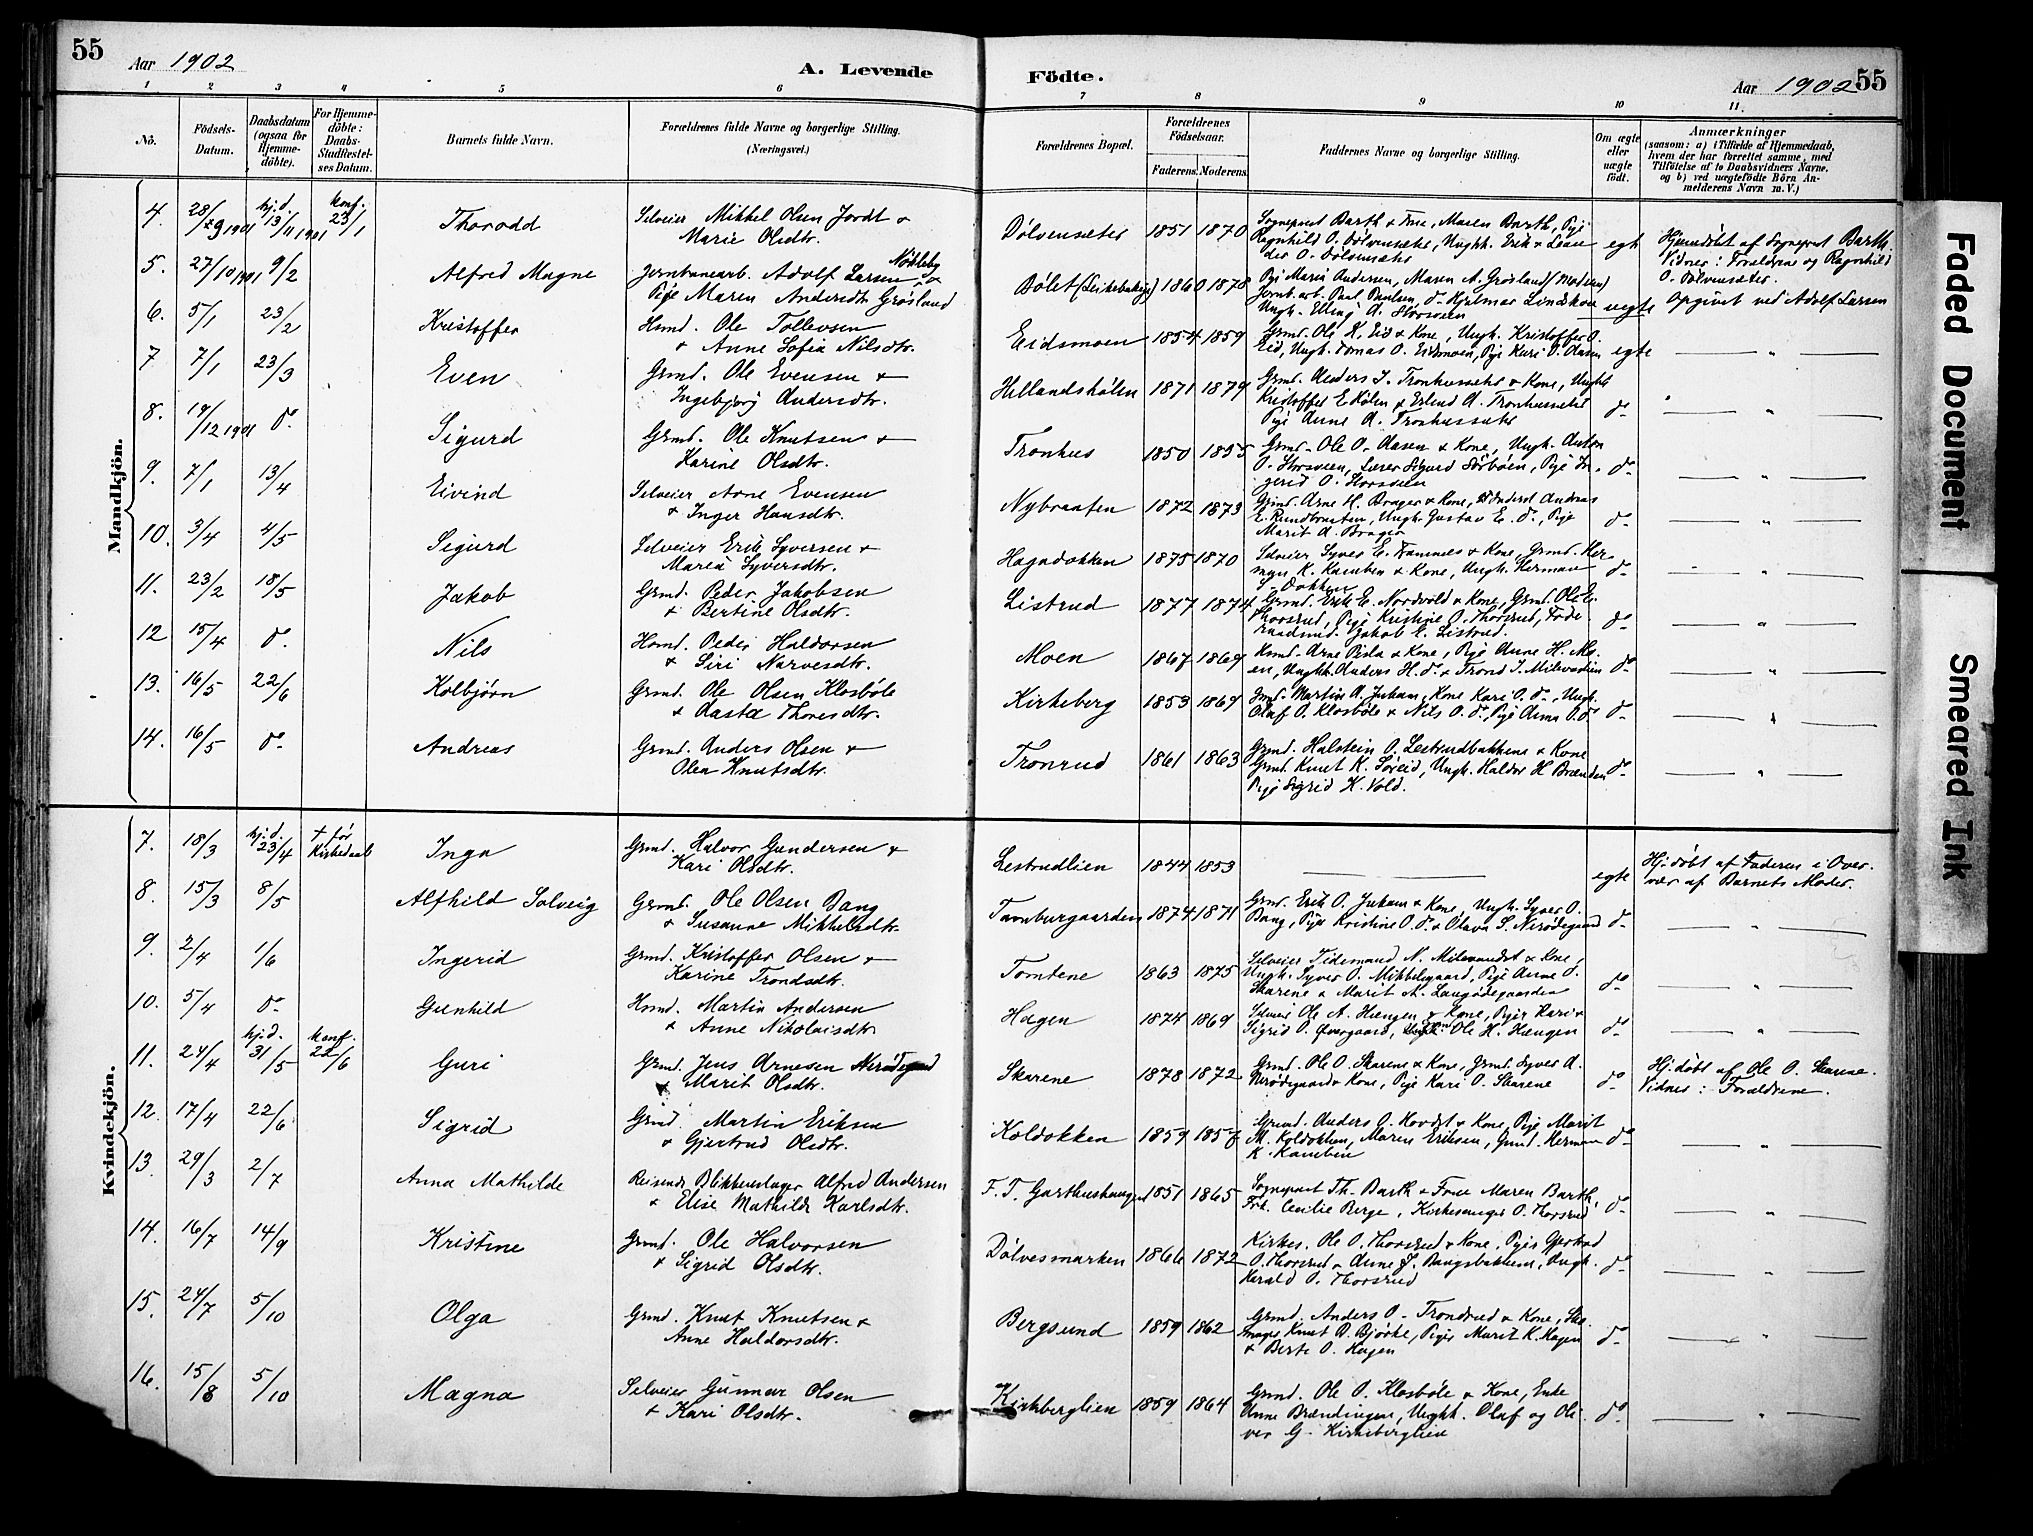 55
Aar 1902
A. Levende
Födte.
Aar 1902
55
1 2 3 4 5 6 7 8 9 10 11.
No.
Födsels-Datum.
Daabsdatum (ogsaa for Hjemmedöbte).
For Hjemmedöbte: Daabs-Stadfæstelses Datum.
Barnets fulde Navn.
Forældrenes fulde Navne og borgerlige Stilling. (Næringsvei.)
Forældrenes Bopæl.
Forældrenes Födselsaar.
Faderens. Moderens.
Faddernes Navne og borgerlige Stilling.
Om ægte eller uægte födt.
Anmærkninger
(saasom: a) i Tilfælde af Hjemmedaab, hvem der har forrettet samme, med Tilföielse af to Daabsvidners Navne, og b) ved uægtefödte Börn Anmelderens Navn m.V.)
Mandkjön.
4. 28/9 1901 hj.d. 13/11 1901 konf. 23/1 Thorodd
Selveier Mikkel Olsen Jordt &
Marie Olsdtr.
Dölvensæter 1851 1870
Sognepræst Barth & Frue, Maren Barth, Pige
Ragnhild O. Dölvensæter, Ungk. Erik &
O. Dölvensæter
egt
Hjemdöbt af Sognepræst Barth.
Vidner: Forældrene og Ragnhild
O. Dölvensæter.
5. 27/10 1901 9/2 Alfred Magne
Jernbanearb. Adolf Larsen Nökleby &
Pige Maren Andersdtr Grösland
Bölet 1860 1878
Pige Maria Andersen, Maren A. Grösland (Moderen)
Jernb.arb. Paul Paulsen, do Hjalmar
Ungk. Elling A. Storsveen
uegte
Opgivet ved Adolf Larsen
6. 5/1 23/2 Kristoffer
Hsmd. Ole Tollevsen
& Anne Sofia Nilsdtr.
Eidsmoen 1854 1859
Grmd. Ole K. Eid & Kone, Ungk. Kristoffer O.
Eid, Ungk. Tomas O. Eidsmoen, Pige Kari O. Aasen
egte — „ —
7 7/1 23/3 Even
Grmd. Ole Evensen &
Ingebjørg Andersdtr.
Hillandshölen 1871 1879
Grmd. Anders J. Tronhussæter & Kone, Ungk.
Kristoffer E. Hölen & Erlend A. Tronhussæter
Pige Anne A. Tronhussæter
do — „ —
8. 19/12 1901 do. Sigurd
Grmd. Ole Knutsen &
Karine Olsdtr.
Tronhus 1850 1855
Grmd. Ole O. Aasen & Kone, Ungk. Anton
O. Storsveen, Lærer Sigurd Sörböen, Pige In-
gerid O. Storsveen
do — „ —
9. 7/1 13/4 Eivind
Selveier Arne Evensen
& Inger Hansdtr.
Nybraaten 1872 1873
Grmd. Arne H. Brager & Kone, Andreas
E. Rundbraaten, Ungk. Gustav E. do., Pige
Marit A. Brager
do — „ —
10. 3/4 4/5 Sigurd
Selveier Erik Syversen &
Maria Syversdtr.
Hagadokken 1875 1870
Selveier Syver E. & Kone, Grmd. Her-
man K. Kamben & Kone, Ungk. Herman
S. Dokken
do — „ —
11. 23/2 18/5 Jakob
Grmd. Peder Jakobsen
& Bertine Olsdtr.
Listrud 1877 1874
Grmd. Erik E. Nordvold & Kone, Grmd. Ole E.
Thorsrud, Pige Kristine O. Thorsrud, Föde-
raadsmd. Jakob E. Listrud.
do — „ —
12 15/4 do. Nils
Hsmd. Peder Haldorsen
& Siri Narvesdtr.
Moen 1867 1869
Hsmd. Arne & Kone, Pige Anne H. Mo-
en, Ungk. Anders H. do & Trond J.
do — „ —
13. 16/5 22/6 Kolbjørn
Grmd. Ole Olsen Klosböle
& Aasta Thoresdtr.
Kirkeberg 1853 1869
Grmd. Martin A. Juham, Kone Kari O. do, Ungk.
Olaf O. Klosböle & Nils O. do, Pige Anna O. do
do — „ —
14. 16/5 do. Andreas
Grmd. Anders Olsen &
Olea Knutsdtr.
Tronrud 1861 1863
Grmd. Halstein O. Lestrudbakkene & Kone
Grmd. Knut K. Søreid, Ungk. Haldor H Brænden
Pige Sigrid K. Vold.
do — „ —
Kvindekjön.
7. 18/3 hj.d. 23/4 + før Kirkedaab Inga
Grmd. Halvor Gundersen &
Kari Olsdtr.
Lestrudlien 1844 1853
— egte
Hj.döbt af Faderen i Over-
vær af Barnets Moder.
8. 15/3 8/5 Alfhild Solveig
Grmd. Ole Olsen Bang
& Susanne Mikkelsdtr.
Tamburgaarden 1874 1871
Grmd. Erik O. Juham & Kone, Ungk. Syver O.
Bang, Pige Kristine O. do. & Olava S. Nerødegaard
do — „ —
9. 2/4 1/6 Ingerid
Grmd. Kristoffer Olsen &
Karine Trondsdtr.
Tomtene 1863 1875
Selveier Tidemand N. & Kone,
Ungk. Syver O. Mikkelsgaard, Pige Anne O.
Skarene & Marit A.
do — „ —
10. 5/4 do Gunhild
Hsmd. Martin Andersen
& Anne Nikolaisdtr.
Hagen 1874 1869
Selveier Ole A. Haugen & Kone, Piger Kari &
Sigrid O. Øvergaard, Ungk. Ole H. Haugen
do — „ —
11. 24/4 hj.d. 31/5 konf. 22/6 Guri
Grmd. Jens Arnesen Nerødegaard
& Marit Olsdtr.
Skarene 1878 1872
Grmd. Ole O. Skarene & Kone, Grmd. Syver A.
Nerødegaard & Kone, Pige Kari O. Skarene
do
Hj.döbt af Ole O. Skarene.
Vidner: Forældrene.
12. 17/4 22/6 Sigrid
Grmd. Martin Eriksen
& Gjertrud Olsdtr.
Koldokken 1859 1857
Grmd. Anders O. Hovdet & Kone, Pige Marit
M. Koldokken, Maren Eriksen, Grmd. Herman
K. Kamben
do — „ —
13. 29/3 2/7 Anna Mathilde
Reisende Blikkenslager Alfred Andersen
& Elise Mathilde Karlsdtr.
F. T. Garthushaugen 1851 1865
Sognepræst Th. Barth & Frue Maren Barth,
Frk. Cecilie Berge, Kirkesanger O. Thorsrud
do — „ —
14. 16/7 14/9 Kristine
Grmd. Ole Halvorsen
& Sigrid Olsdtr.
Dölvesmarken 1866 1872
Kirkes. Ole O. Thorsrud & Kone, Piger Gjertrud
O. Thorsrud & Anne J. Bangsbakken, Ungk.
Harald O. Thorsrud
do — „ —
15. 24/7 5/10 Olga
Grmd. Knut Knutsen &
Anne Haldorsdtr.
Bergsund 1859 1862
Grmd. Anders O. Trondrud & Kone, Sko-
mager Knut O. Bjørke, Piger Marit K. Hagen
& Berte O. Hagen
do — „ —
16. 15/8 5/10 Magna
Selveier Gunnar Olsen
& Kari Olsdtr.
Kirkeberglien 1859 1864
Grmd. Ole O. Klosböle & Kone, Enke
Anne Brændingen, Ungk. Olaf og Oli-
ver G. Kirkeberglien
do — „ —
Faded Document
Smeared Ink